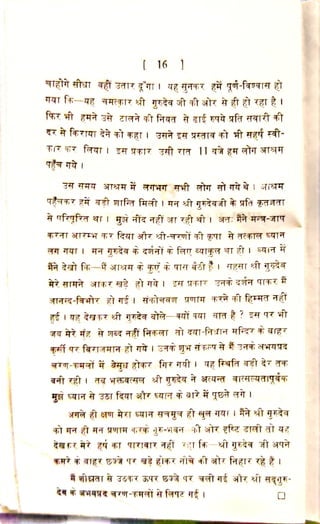 [ 16 ]
चाहोगे सीधा वहीं उतार दूँगा । यह सुनकर हमें पूर्ण-विश्वास हो
गया कि—यह चमत्कार श्री गुरुदेव जी की ओर से ही हो रहा है ।
फिर भी हमने उसे टालने की नियत से ढाई रुपये प्रति सवारी की
दर से किराया देने को कहा । उसने इस प्रस्ताव को भी सहर्ष स्वी-
कार कर लिया । इस प्रकार उसी रात 11 बजे हम लोग आश्रम
पहुँच गये ।
उस समय आश्रम में लगभग सभी लोग सो गये थे । आश्रम
पहुँचकर हमें बड़ी शान्ति मिली । मन श्री गुरुदेवजी के प्रति कृतज्ञता
से परिपूरित था । मुझे नींद नहीं आ रही थी । अतः मैंने मन्त्र-जाप
करना आरम्भ कर दिया और श्री-चरणों की कृपा से तत्काल ध्यान
लग गया । मन गुरुदेव के दर्शनों के लिए व्याकुल था ही । ध्यान में
मैंने देखो कि—मैं आश्रम के कुएं के पास बैठी हूँ । सहसा श्री गुरुदेव
मेरे सामने आकर खड़े हो गये । इस प्रकार उनके दर्शन पाकर मैं
आनन्द-विभोर हो गई । संकोचवश प्रणाम करने की हिम्मत नहीं
हुई । यह देखकर श्री गुरुदेव बोले—क्यों क्या बात है ? इस पर भी
जब मेरे मुंह से शब्द नहीं निकला तो दया-निधान मन्दिर के बाहर
कुर्सी पर विराजमान हो गये । उनके शुभ संकल्प से मैं उनके अभयप्रद
चरण-कमलों में बेसुध होकर गिर गयी । यह स्थिति बड़ी देर तक
बनी रही । तब भक्तवत्सल श्री गुरुदेव ने अत्यन्त वात्सल्यतापूर्वक
मुझे ध्यान से उठा दिया और ध्यान के बारे में पूछने लगे ।
अगले ही क्षण मेरा ध्यान सचमुच ही खुल गया । मैंने श्री गुरुदेव
को मन ही मन प्रणाम करके गुरु-भवन की ओर दृष्टि डाली तो यह
देखकर मेरे हर्ष का पारावार नहीं रहा कि—श्री गुरुदेव जी अपने
कमरे के बाहर छज्जे पर खड़े होकर नीचे की ओर निहार रहे हैं ।
मैं शीघ्रता से उठकर ऊपर छज्जे पर चली गई और श्री सद्गुरु-
देव के अभयप्रद चरण-कमलों से लिपट गई ।